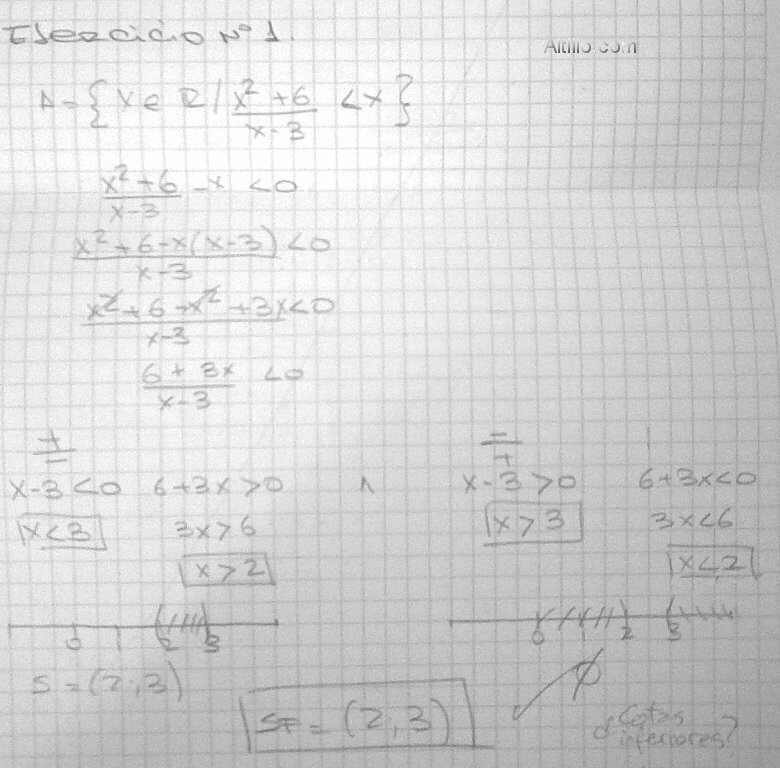 Ejercicio Nº 1.
Altillo.com
A = { x ∈ R / (x² + 6)/(x - 3) < x }
(x² + 6)/(x - 3) - x < 0
(x² + 6 - x(x - 3))/(x - 3) < 0
(x² + 6 - x² + 3x)/(x - 3) < 0
(6 + 3x)/(x - 3) < 0
+/- -/+
x - 3 < 0 6 + 3x > 0 ∧ x - 3 > 0 6 + 3x < 0
x < 3 3x > 6 x > 3 3x < 6
x > 2 x < 2
0 1 2 3 0 1 2 3
S = (2, 3) ∅
SF = (2, 3) ✓
¿Cotas
inferiores?